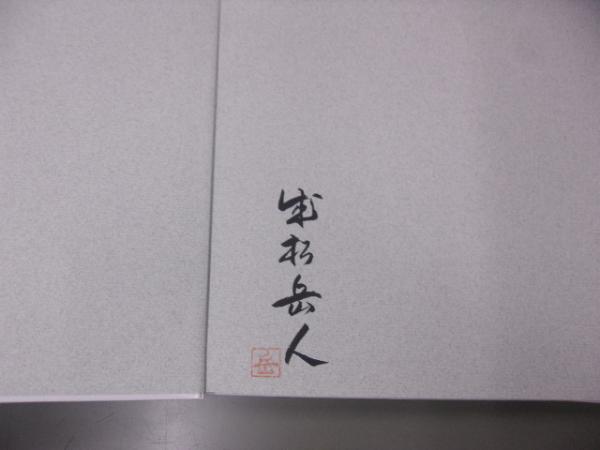 成松岳人
岳